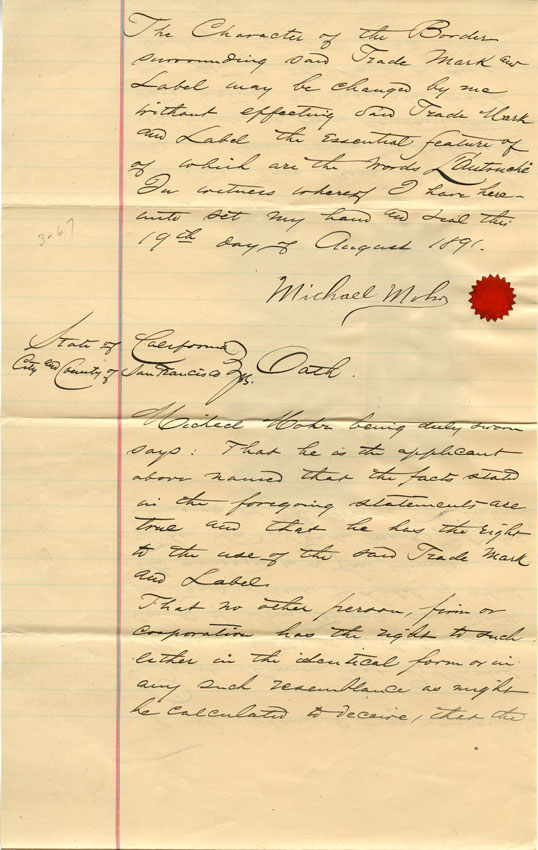 The Character of the Border
surrounding said Trade Mark and
Label may be changed by me
without effecting Said Trade Mark
and Label the Essential feature of
of which are the words L'Autouché
In witness whereof I have here-
unto set my hand and seal this
19th day of August 1891.
3-67
Michael Mohr
State of California
City and County of San Francisco } ss. Oath.
Michael Mohr being duly sworn
says: That he is the applicant
above named that the facts stated
in the foregoing statements are
true and that he has the right
to the use of the said Trade Mark
and Label.
That no other person, firm or
corporation has the right to such
either in the identical form or in
any such resemblance as might
be calculated to deceive, that the